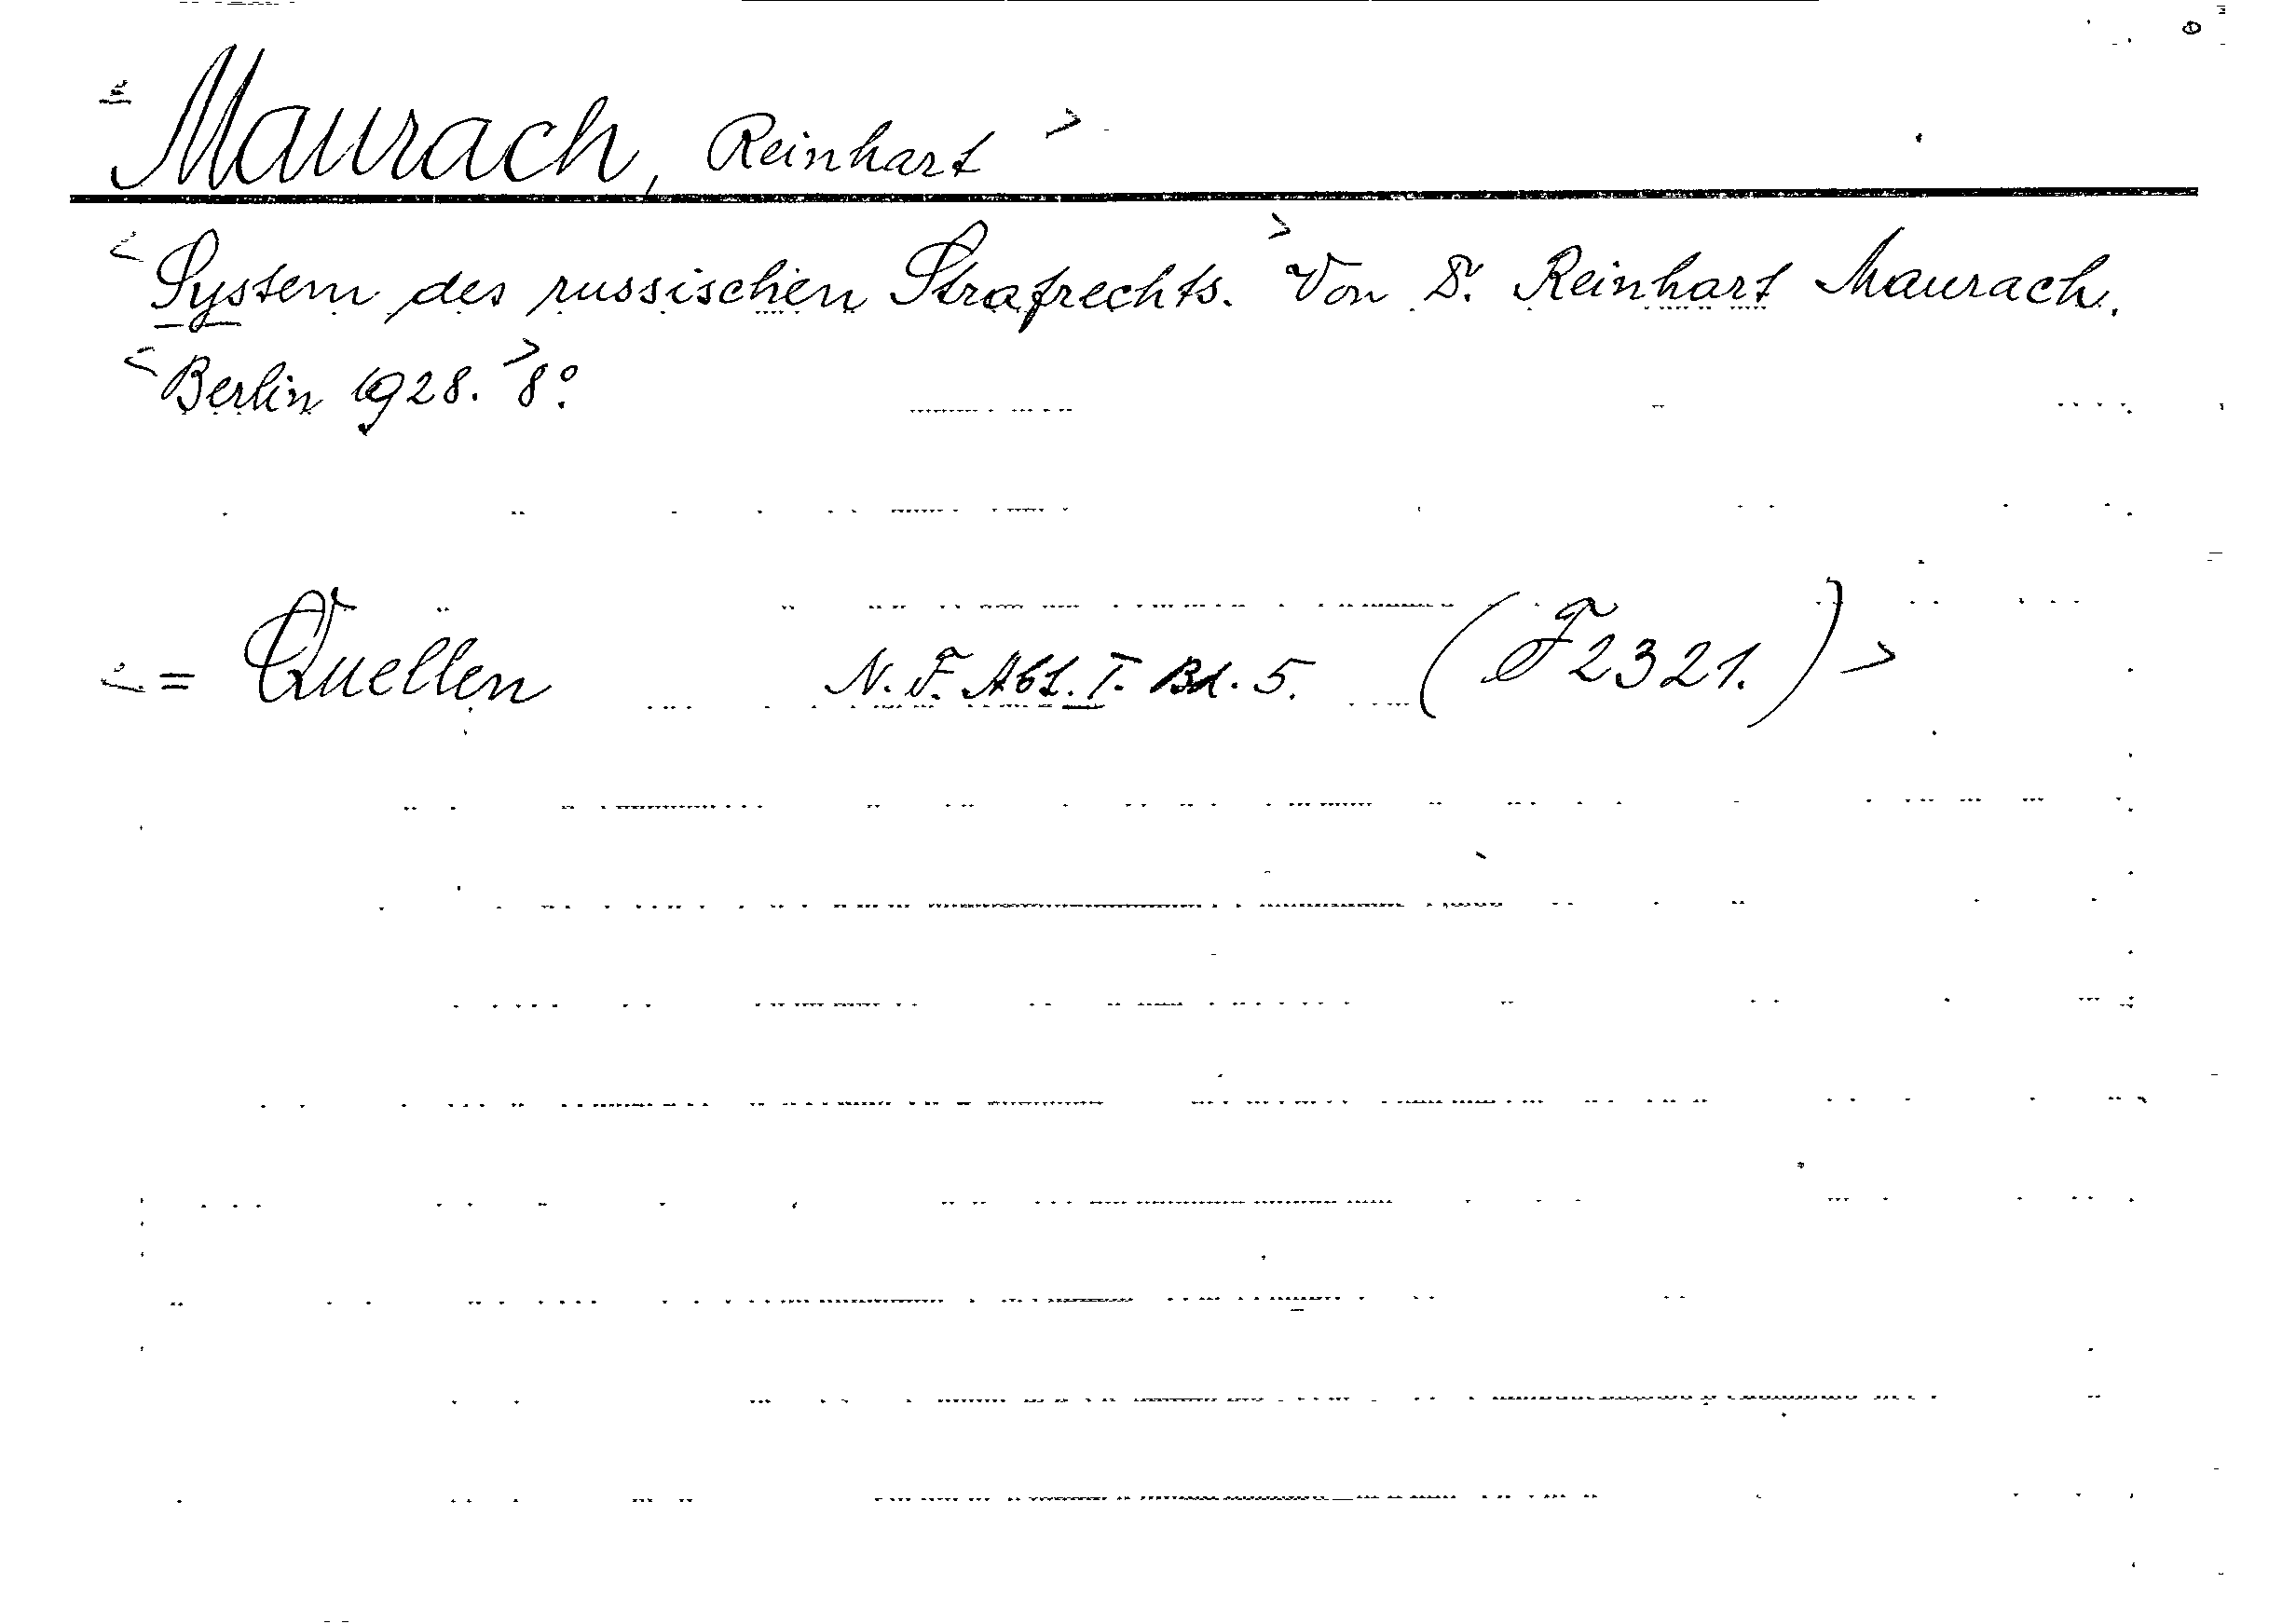 < Maurach, Reinhart >
< System des russischen Strafrechts. > Von Dr. Reinhart Maurach.
< Berlin 1928. > 8°.
< = Quellen N. F. Abt. I. Bd. 5. (F 2321.) >